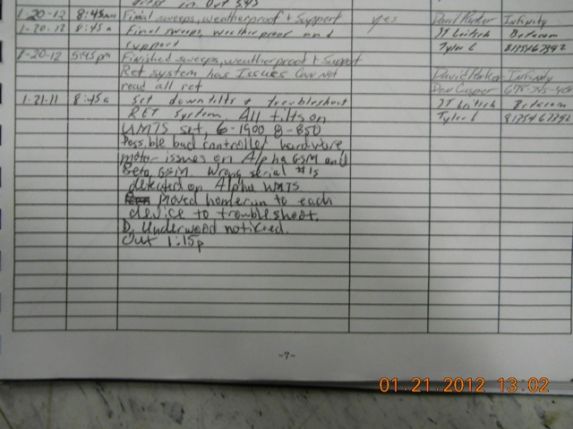 in Out 545
1-20-12 8:45am Final sweeps, weatherproof + Support yes David Parker Infinity
1-20-12 8:45a Final sweeps, weatherproof and JJ Leitch Betacom
support Tyler L 8175467392
1-20-12 5:45pm Finished sweeps, weatherproof + Support
Ret system has Issues Can not David Parker Infinity
read all ret Don Casper
1-21-11 8:45a Set downtilts & troubleshoot JJ Leitch Betacom
RET system. All tilts on Tyler L 8175467392
UMTS set, 6-1900 8-850
Possible bad controller hardware,
motor issues on Alpha GSM and
Beta GSM. Wrong serial #'s
detected on Alpha UMTS
Moved homerun to each
device to troubleshoot.
D. Underwood notified.
Out 1:15p
-7-
01.21.2012 13:02